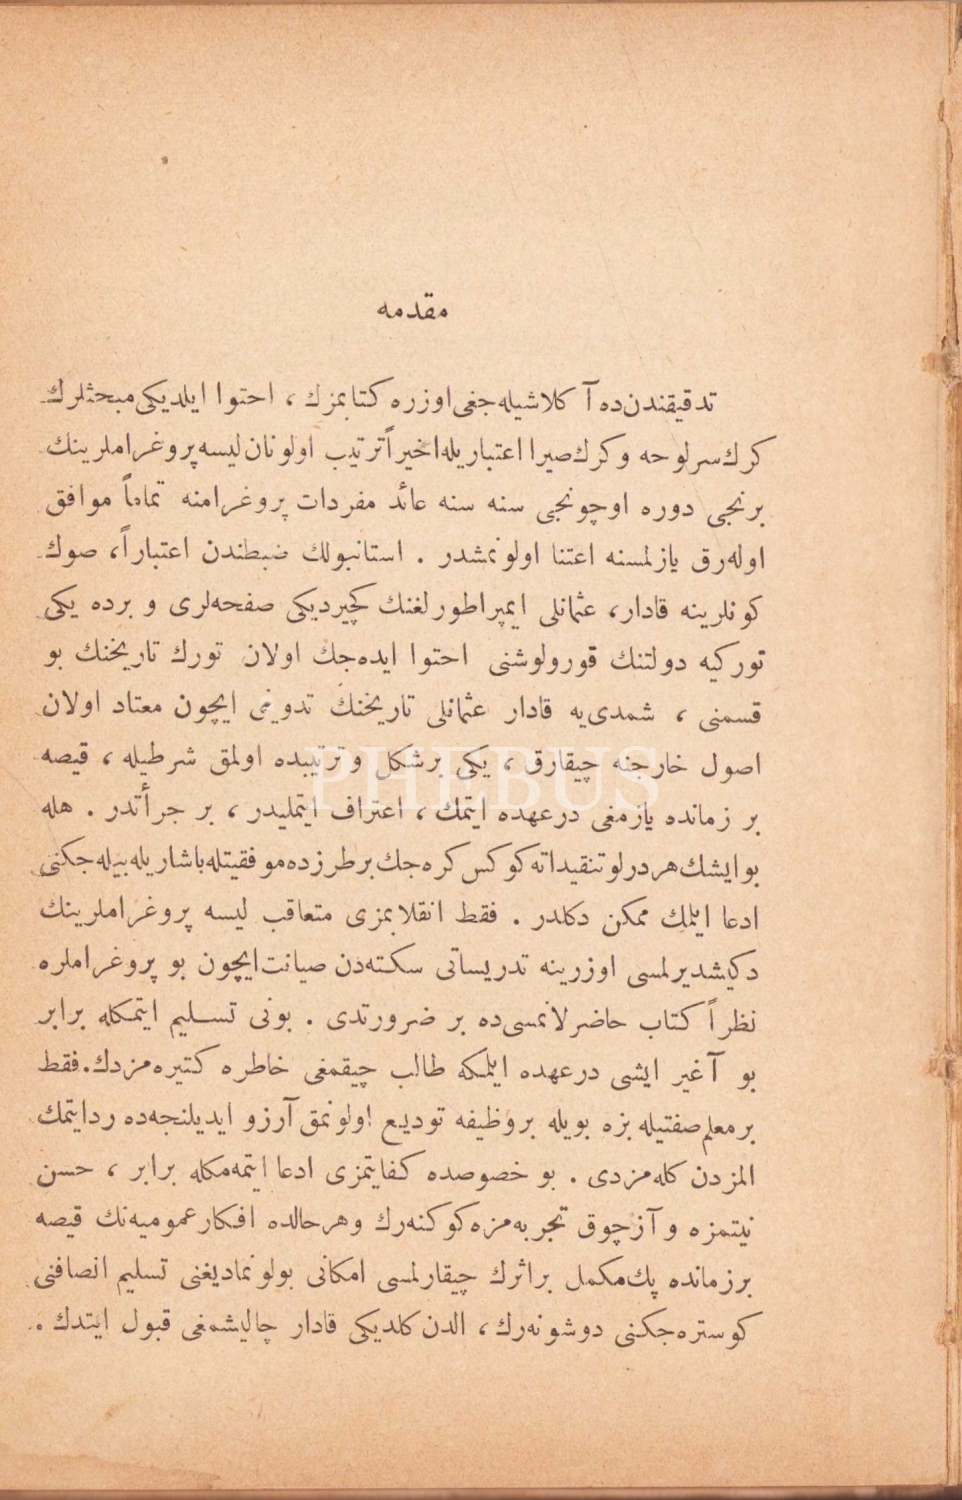 مقدمه
تدقیقندن‌ده آ كلاشیله‌جغی اوزره كتابمزك ، احتوا ایلدیكی مبحثلرك
كرك‌سرلوحه وكرك‌صیرا اعتباریله‌اخیراً ترتیب اولونان لیسه‌پروغراملرینك
برنجی دوره اوچونجی سنه سنه عائد مفردات پروغرامنه تماماً موافق
اوله‌رق یازلمسنه اعتنا اولونمشدر . استانبولك ضبطندن اعتباراً، صوك
كونلرینه قادار، عثمانلی ایمپراطورلغنك كچیردیكی صفحه‌لری و برده یكی
توركیه دولتنك قورولوشنی احتوا ایده‌جك اولان تورك تاریخنك بو
قسمنی ، شمدی‌یه قادار عثمانلی تاریخنك تدوینی ایچون معتاد اولان
PHEBUS
اصول خارجنه چیقارق ، یكی برشكل و ترتیبده اولمق شرطیله ، قیصه
بر زمانده یازمغی درعهده ایتمك ، اعتراف ایتملیدر ، بر جرأتدر . هله
بوایشك‌هردرلوتنقیداته‌كوكس كره‌جك‌برطرزده‌موفقیتله‌باشاریله‌بیله‌جكنی
ادعا ایلمك ممكن دكلدر . فقط انقلابمزی متعاقب لیسه پروغراملرینك
دكیشدیرلمسی اوزرینه تدریساتی سكته‌دن صیانت‌ایچون بو پروغراملره
نظراً كتاب حاضرلانمسی‌ده بر ضرورتدی . بونی تسلیم ایتمكله برابر
بو آغیر ایشی درعهده ایلمكه طالب چیقمغی خاطره كتیره‌مزدك.فقط
برمعلم‌صفتیله بزه بویله بروظیفه تودیع اولونمق آرزو ایدیلنجه‌ده ردایتمك
المزدن كله‌مزدی . بو خصوصده كفایتمزی ادعا ایتمه‌مكله برابر ، حسن
نیتمزه و آزچوق تجربه‌مزه كوكنه‌رك وهرحالده افكارعمومیه‌نك قیصه
برزمانده پك‌مكمل براثرك چیقارلمسی امكانی بولونمادیغنی تسلیم انصافنی
كوستره‌جكنی دوشونه‌رك ، الدن كلدیكی قادار چالیشمغی قبول ایتدك .